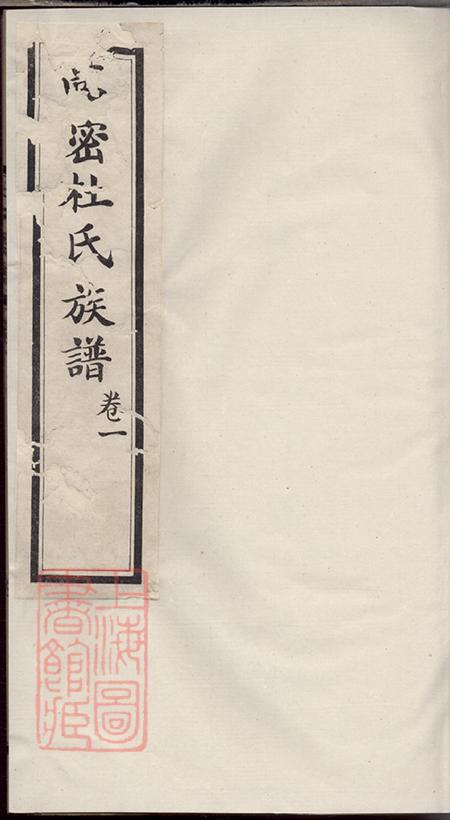 密杜氏族譜
卷一
上海圖
書館臧